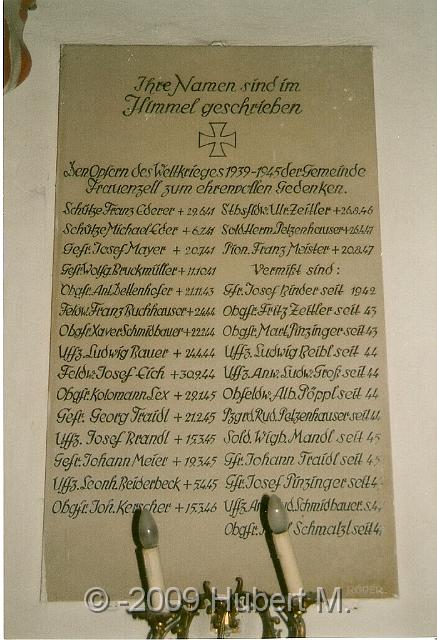 Ihre Namen sind im
Himmel geschrieben
Den Opfern des Weltkrieges 1939-1945 der Gemeinde
Frauenzell zum ehrenvollen Gedenken.
Schütze Franz Ederer + 29.6.41
Schütze Michael Eder + 6.7.41
Gefr. Josef Mayer + 20.7.41
Gefr. Wolfg. Bruckmüller + 11.10.41
Obgfr. Ant. Dellenhofer + 21.11.43
Feldw. Franz Buchhauser + 2.4.44
Obgfr. Xaver Schmidbauer + 22.2.44
Uffz. Ludwig Bauer + 24.4.44
Feldw. Josef Eich + 30.9.44
Obgfr. Kolomann Lex + 29.1.45
Gefr. Georg Traidl + 21.2.45
Uffz. Josef Brandl + 15.3.45
Gefr. Johann Meier + 19.3.45
Uffz. Leonh. Beiderbeck + 5.4.45
Obgfr. Joh. Kerscher + 15.3.46
Stbsfldw. Ulr. Zeitler + 26.8.46
Sold. Herm. Petzenhauser + 26.1.47
Pion. Franz Meister + 20.8.47
Vermißt sind:
Gfr. Josef Binder seit 1942
Obgfr. Fritz Zettler seit 43
Obgfr. Mart. Pinzinger seit 43
Uffz. Ludwig Beibl seit 44
Uffz. Anw. Ludw. Groß seit 44
Obfeldw. Alb. Pöppl seit 44
Pzgrd. Rud. Petzenhauser seit 44
Sold. Wigb. Mandl seit 45
Gfr. Johann Traidl seit 45
Gfr. Josef Pinzinger seit
Uffz. Schmidbauer s. 4
Obgfr. Schmalzl seit 4
RÖDER
© -2009 Hubert M.